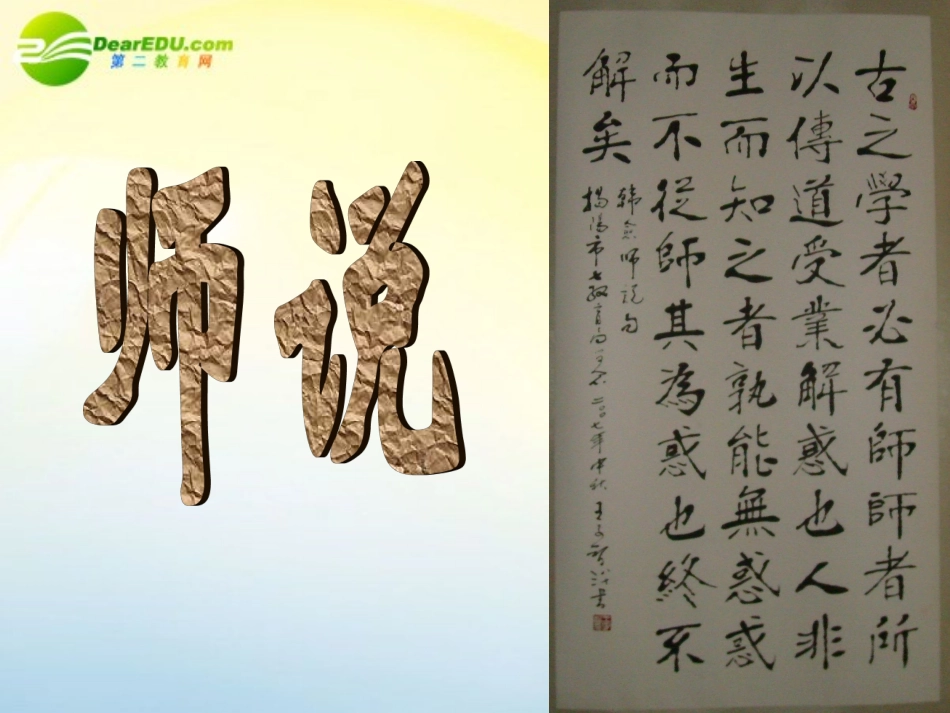 DearEDU.com
第二教育网
师说
古之學者必有師師者所
以傳道受業解惑也人非
生而知之者孰能無惑惑
而不從師其為惑也終不
解矣
韩愈师说句